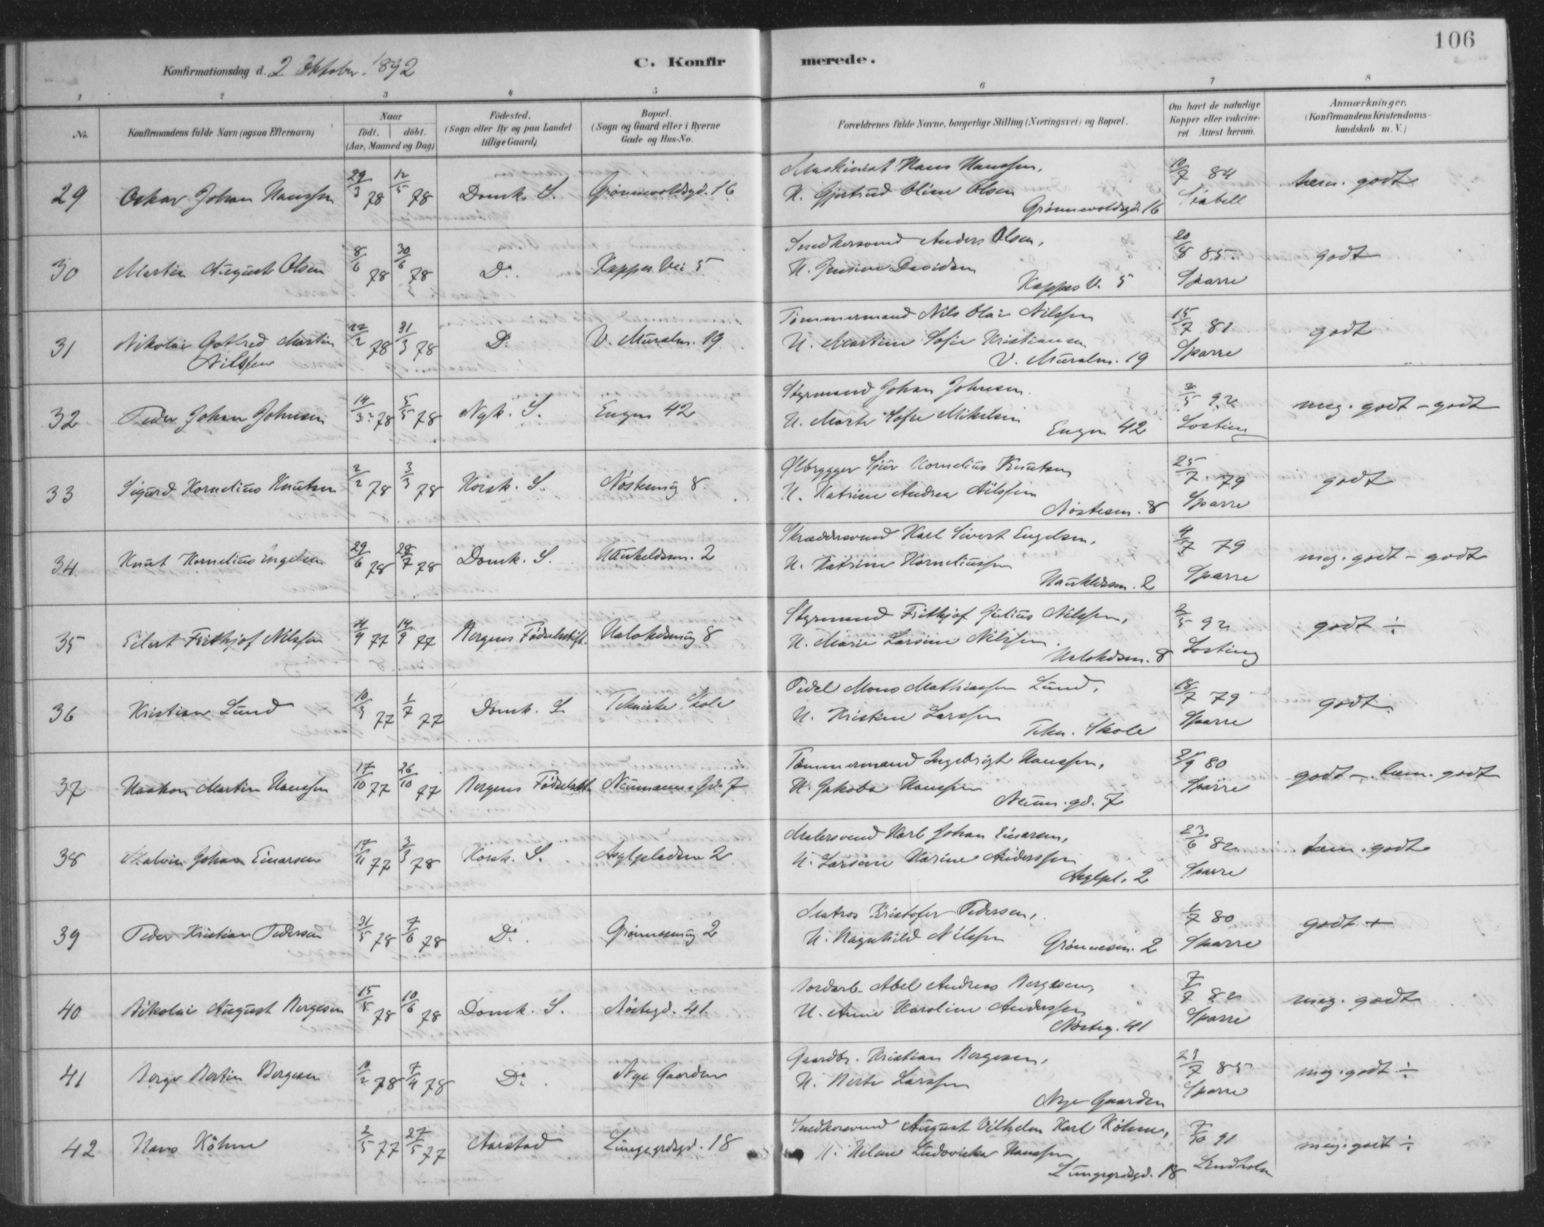 106
Konfirmationsdag d. 2 Oktober 1892
C. Konfirmerede.
1 2 3 4 5 6 7 8
No.
Konfirmandens fulde Navn (ogsaa Efternavn)
Naar
født. døbt.
(Aar, Maaned og Dag)
Fødested.
(Sogn eller By og paa Landet
tillige Gaard)
Bopæl.
(Sogn og Gaard eller i Byerne
Gade og Hus-No.
Forældrenes fulde Navne, borgerlige Stilling (Næringsvei) og Bopæl.
Om havt de naturlige
Kopper eller vakcine-
ret Attest herom.
Anmærkninger.
(Konfirmandens Kristendoms-
kundskab m. V.)
29 Oskar Johan Hanssen 29/3 78 12/5 78 Domk. S. Grønnevoldsgd. 16 Maskinist Hans Hanssen,
H. Gjertrud Oline Olsen
Grønnevoldsgd. 16
10/7 84
tem. godt
30 Martin August Olsen 8/6 78 30/6 78 Do. Kappes Vei 5 Snedkersvend Anders Olsen,
H. Davidsen
Kappes V. 5
20/8 85
Sparre
godt
31 Nikolai Gotfred Martin
Nilssen
22/2 78 31/3 78 Do. V. Muralm. 19 Tømmermand Nils Olai Nilssen
H. Martine Sofie Kristiansen
V. Muralm. 19
15/7 81
Sparre
godt
32 Peder Johan Johnsen 14/3 78 5/5 78 Nyk. S. Engen 42 Styrmand Johan Johnsen
H. Marte Sofie Mikelsen
Engen 42
2/5 92
Losting
meg. godt - godt
33 Sigurd Kornelius Knutsen 2/2 78 3/3 78 Korsk. S. Nøstesmug 8 Ølbrygger Sjur Kornelius Knutsen
H. Katrine Andrea Nilssen
Nøstesm. 8
25/7 79
Sparre
godt
34 Knut Kornelius Engelsen 29/6 78 28/7 78 Domk. S. Haukeldsm. 2 Skræddersvend Karl Sivert Engelsen,
H. Katrine Korneliussen
Haukeldsm. 2
4/7 79
Sparre
meg. godt - godt
35 Eilert Frithjof Nilssen 77 77 Bergens Fødselsstift. 8 Styrmand Frithjof Julius Nilssen,
H. Marie Larsine Nilssen
8
2/5 92
Losting
godt ÷
36 Kristian Lund 10/3 77 1/7 77 Domk. S. Tekniske Skole Pedel Mons Mathiassen Lund,
H. Kristine Larssen
Tekn. Skole
18/7 79
Sparre
godt
37 Haakon Martin Hanssen 17/10 77 26/10 77 Bergens Fødselsstift Neumannsgd. 7 Tømmermand Ingebrigt Hanssen,
H. Jakoba Hanssen
Neum. gd. 7
80
Sparre
godt - tem. godt
38 Malvin Johan Einarsen 77 3/3 78 Korsk. S. Asylpladsen 2 Malersvend Karl Johan Einarsen,
H. Larsine Karine Anderssen
Asylpl. 2
23/6 82
Sparre
tem. godt
39 Peder Kristian Pedersen 31/5 78 7/6 78 Do. Grønnesmug 2 Matros Kristofer Pedersen,
H. Ragnhild Nilssen
Grønnesm. 2
1/7 80
Sparre
godt +
40 Nikolai August Bergesen 15/5 78 10/6 78 Domk. S. Nøstegd. 41 Jordarb. Abel Andreas Bergesen,
H. Anne Karoline Anderssen
Nøsteg. 41
7/7 82
Sparre
meg. godt
41 Berge Bertin Bergesen 78 7/4 78 Do. Nye Gaarden Gaardbr. Kristian Bergesen,
H. Berte Larssen
Nye Gaarden
23/7 85
Sparre
meg. godt ÷
42 Hans Køhne 2/5 77 27/5 77 Aarstad Lungegrdsgd. 18 Snedkersvend August Vilhelm Karl Köhne,
H. Helene Ludovicka Hanssen
Lungegrdsgd. 18
91
Lindholm
meg. godt ÷